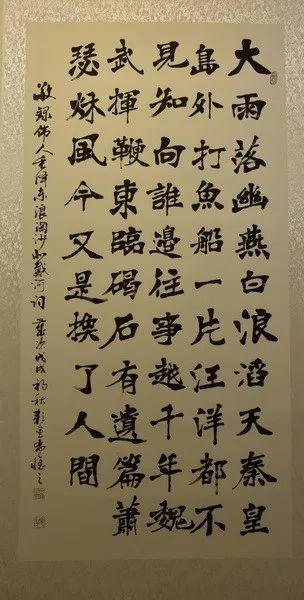 大雨落幽燕白浪滔天秦皇
島外打魚船一片汪洋都不
見知向誰邊往事越千年魏
武揮鞭東臨碣石有遺篇蕭
瑟秋風今又是換了人間
敬録偉人毛澤东浪淘沙北戴河词 歲次戊戌初秋